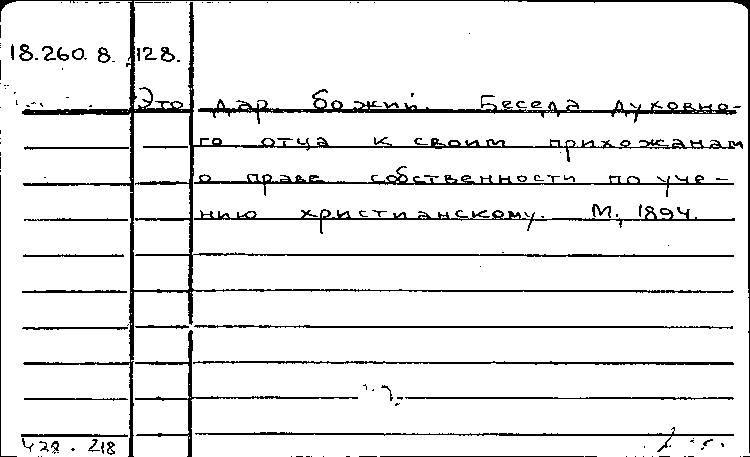 18.260.8.128.
Это дар божий. Беседа духовно-
го отца к своим прихожанам
о праве собственности по уче-
нию христианскому. М., 1894.
428 · 218